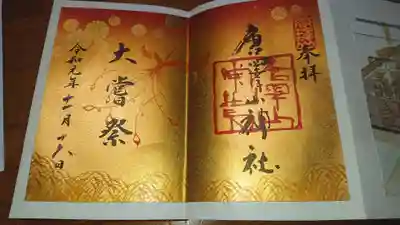 奉拝
唐澤山神社
大嘗祭
令和元年十一月十六日